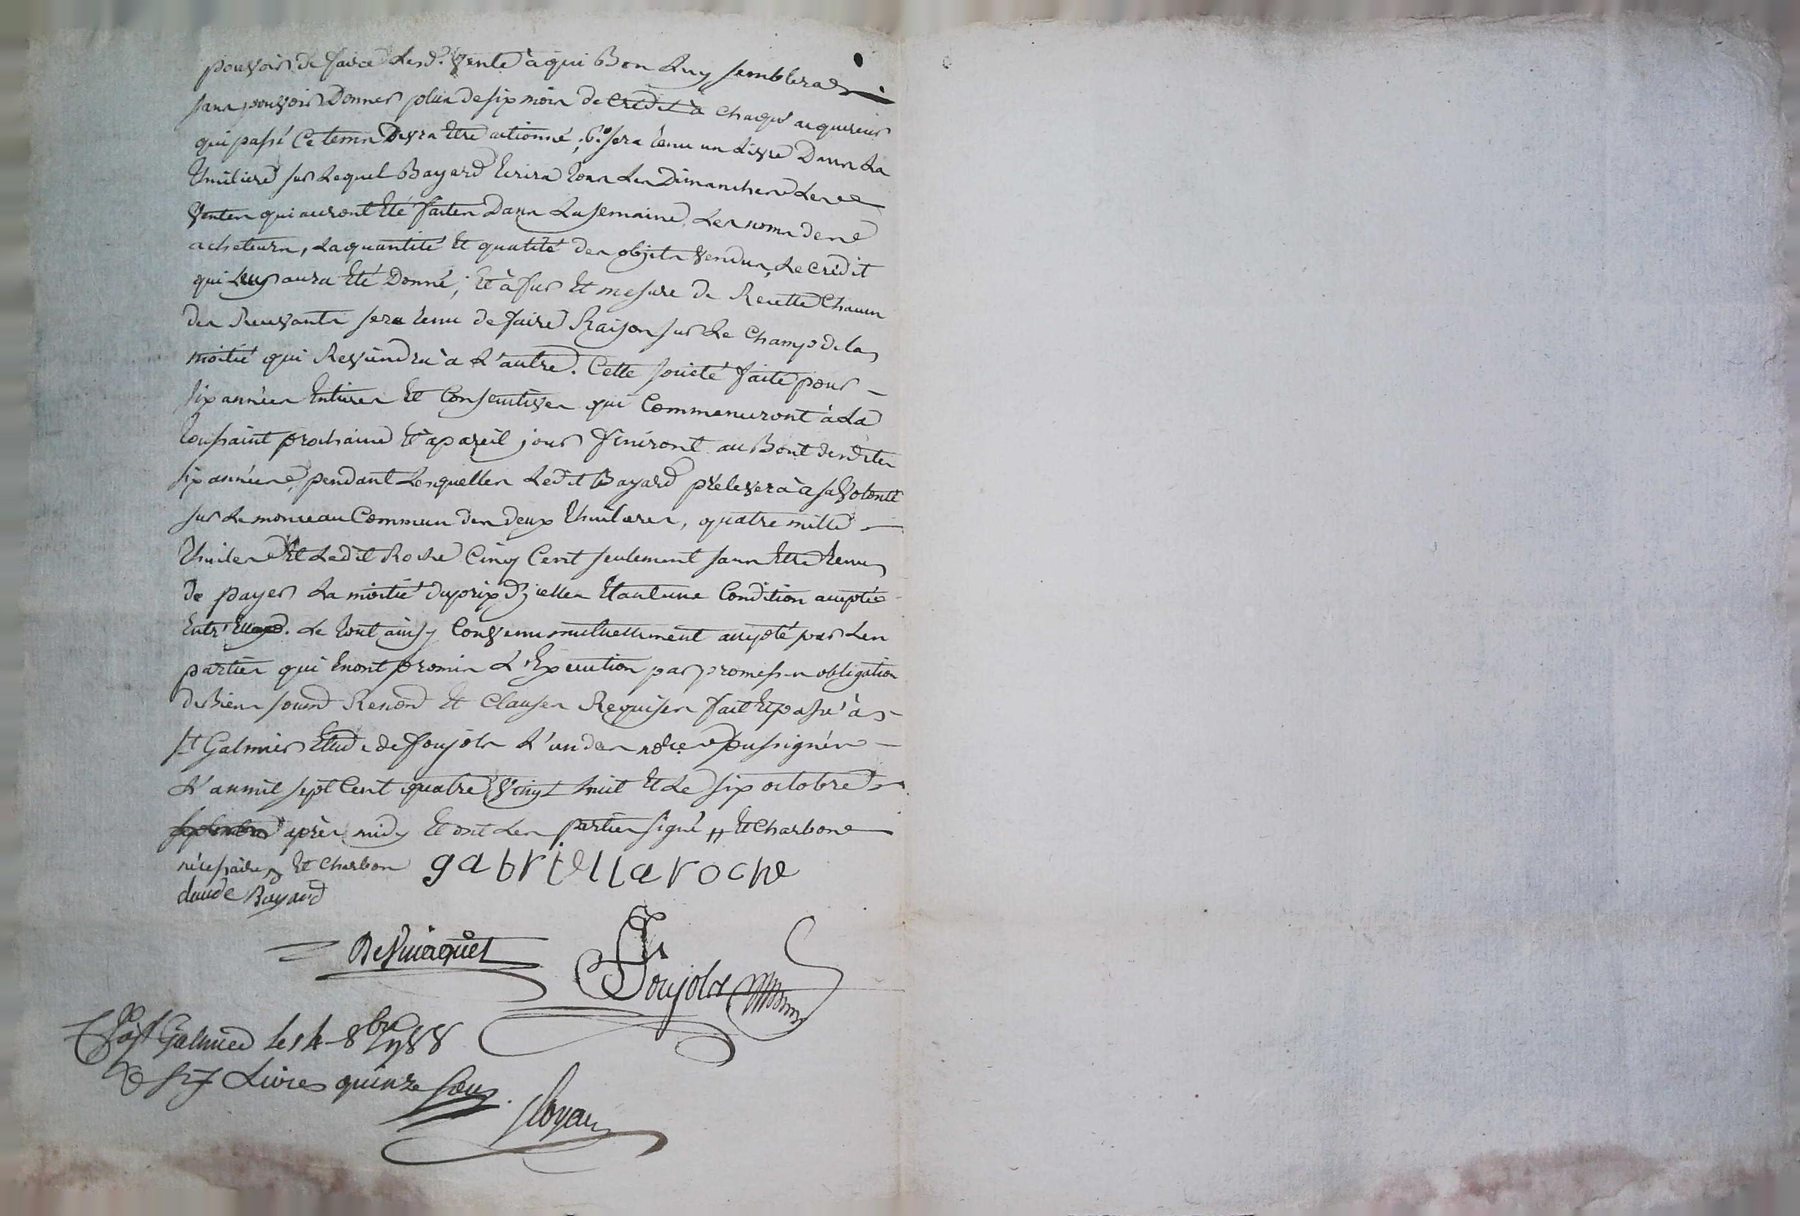 pouvoir de faire lesd. Vente à qui Bon luy semblera
sans pouvoir Donner plus de six mois de crédit à chaque acquereur
qui passé Ce tems Devra Etre actionné; 6.o sera tenu un Livre Dans La
Thuiliere sur Lequel Bayard Ecrira tous Les Dimanches Les
Ventes qui auront Eté faites Dans La semaine, Les noms des
acheteurs, La quantité Et qualité des objets vendus, Le Crédit
qui Leur aura Eté Donné; Et à fur Et mesure de Recette Chacun
des Recevants sera tenu de faire Raison sur Le Champ de la
moitié qui Reviendra à L'autre. Cette société faite pour
six années Entieres Et Consecutives qui Commenceront à La
Toussaint prochaine Et à pareil jour finiront au Bout desdites
six années, pendant Lesquelles Ledit Bayard prélevera à sa Volonté
sur Le monceau Commun des deux Thuilieres, quatre mille
Thuiles Et Ledit Roche Cinq Cent seulement sans Etre tenus
de payer La moitié du prix d'jcelles Et aucune Condition acceptée
Entr'Eux. Le tout ainsy Convenu mutuellement accepté par Les
parties qui En ont promis L'Execution par promesses obligation
de Biens soumd Renond Et Clauses Requises fait Et passé à
St Galmier Etude de foujols L'un des nores soussignés
L'an mil sept Cent quatre Vingt huit Et Le six octobre
septembre après midy Et ont Les parties signé # Et Charbon
nécessaires Et Charbon gabriel laroche
claude Bayard
Foujols
à St Galmier le 14 8bre 1788
sept Livres quinze sous.